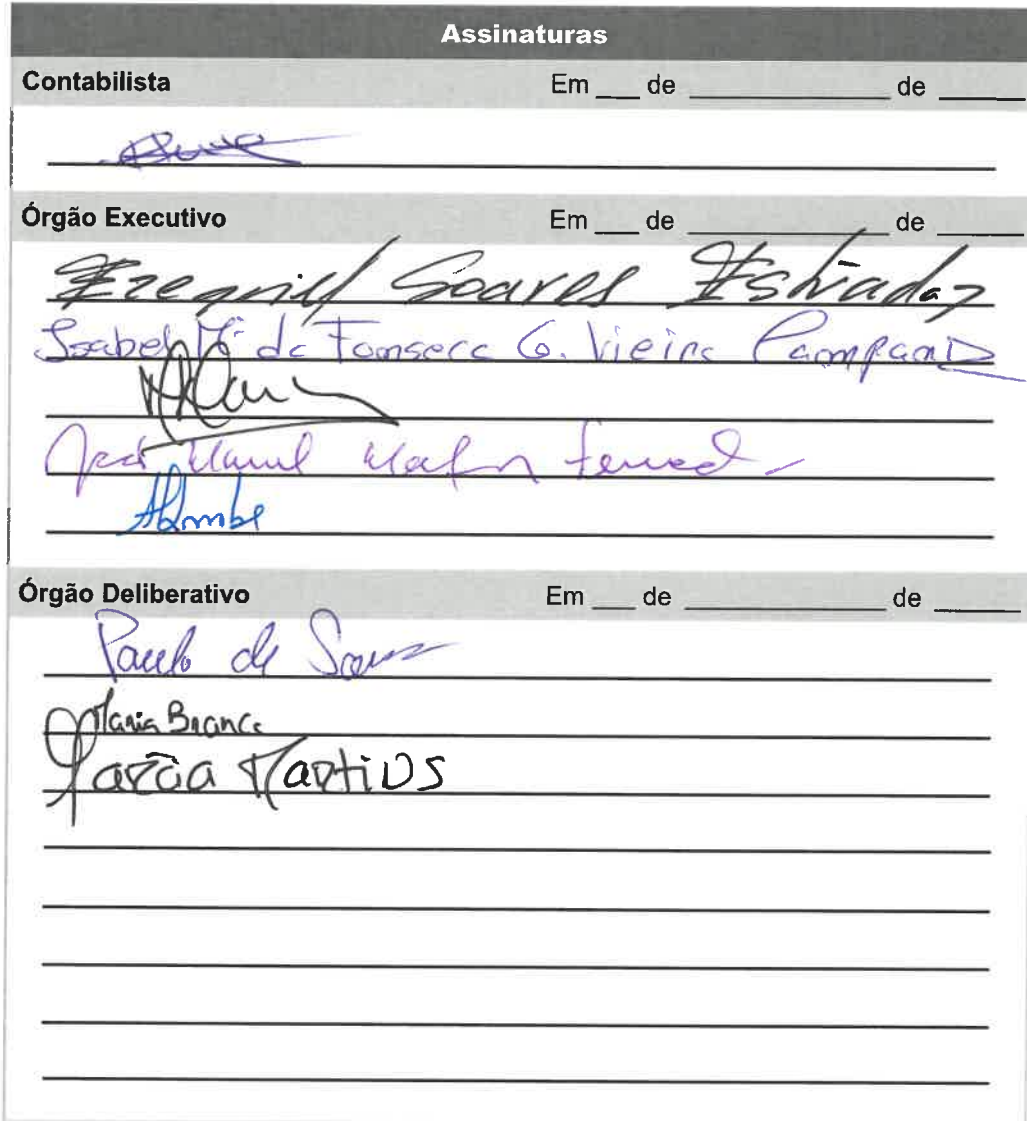 Assinaturas
Contabilista Em ___ de ______________ de _____
Órgão Executivo Em ___ de ______________ de _____
Ezequiel Soares Estrada
Isabel Mª da Fonseca G. Vieira
José Manuel
Órgão Deliberativo Em ___ de ______________ de _____
Paulo de Sousa
Maria Branca
Martins